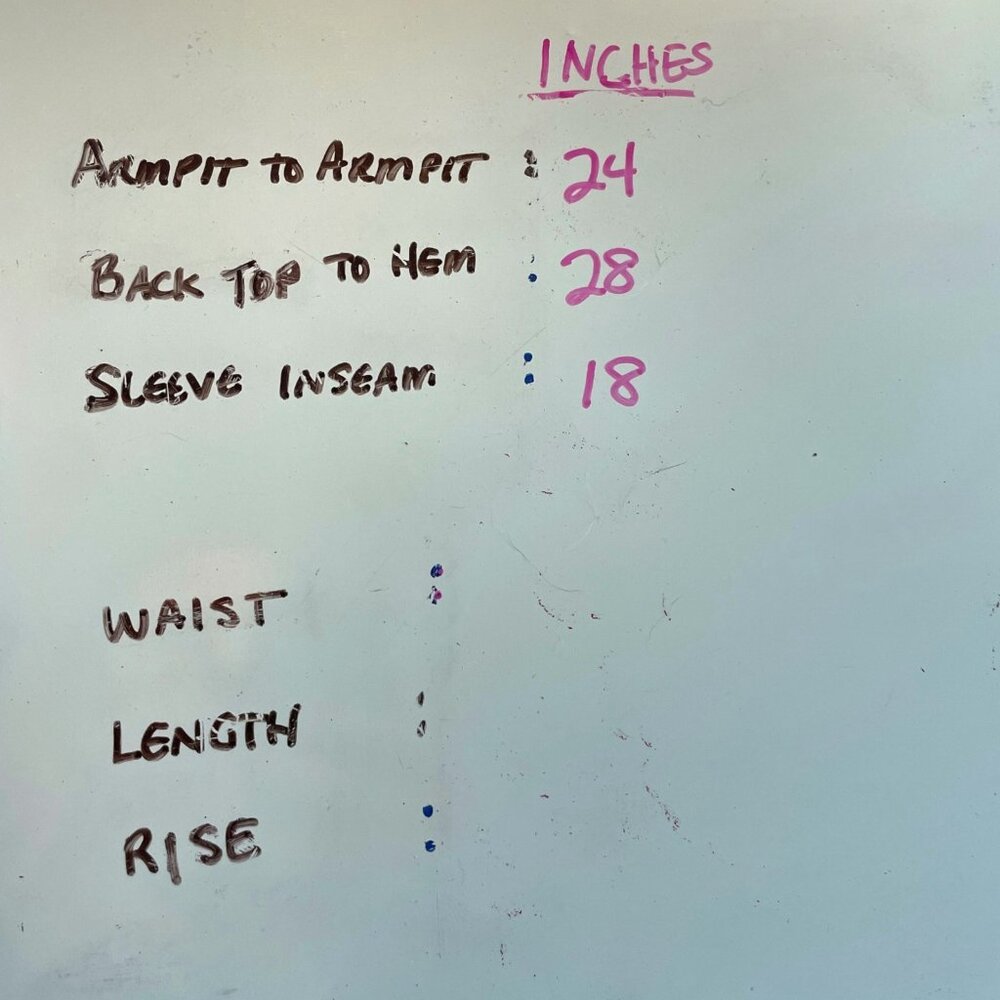 INCHES
ARMPIT TO ARMPIT : 24
BACK TOP TO HEM : 28
SLEEVE INSEAM : 18
WAIST :
LENGTH :
RISE :